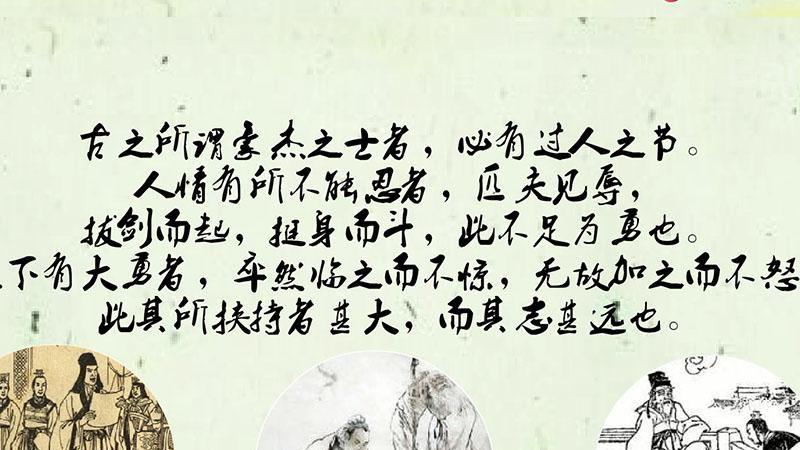 古之所谓豪杰之士者，必有过人之节。
人情有所不能忍者，匹夫见辱，
拔剑而起，挺身而斗，此不足为勇也。
下有大勇者，卒然临之而不惊，无故加之而不怒
此其所挟持者甚大，而其志甚远也。